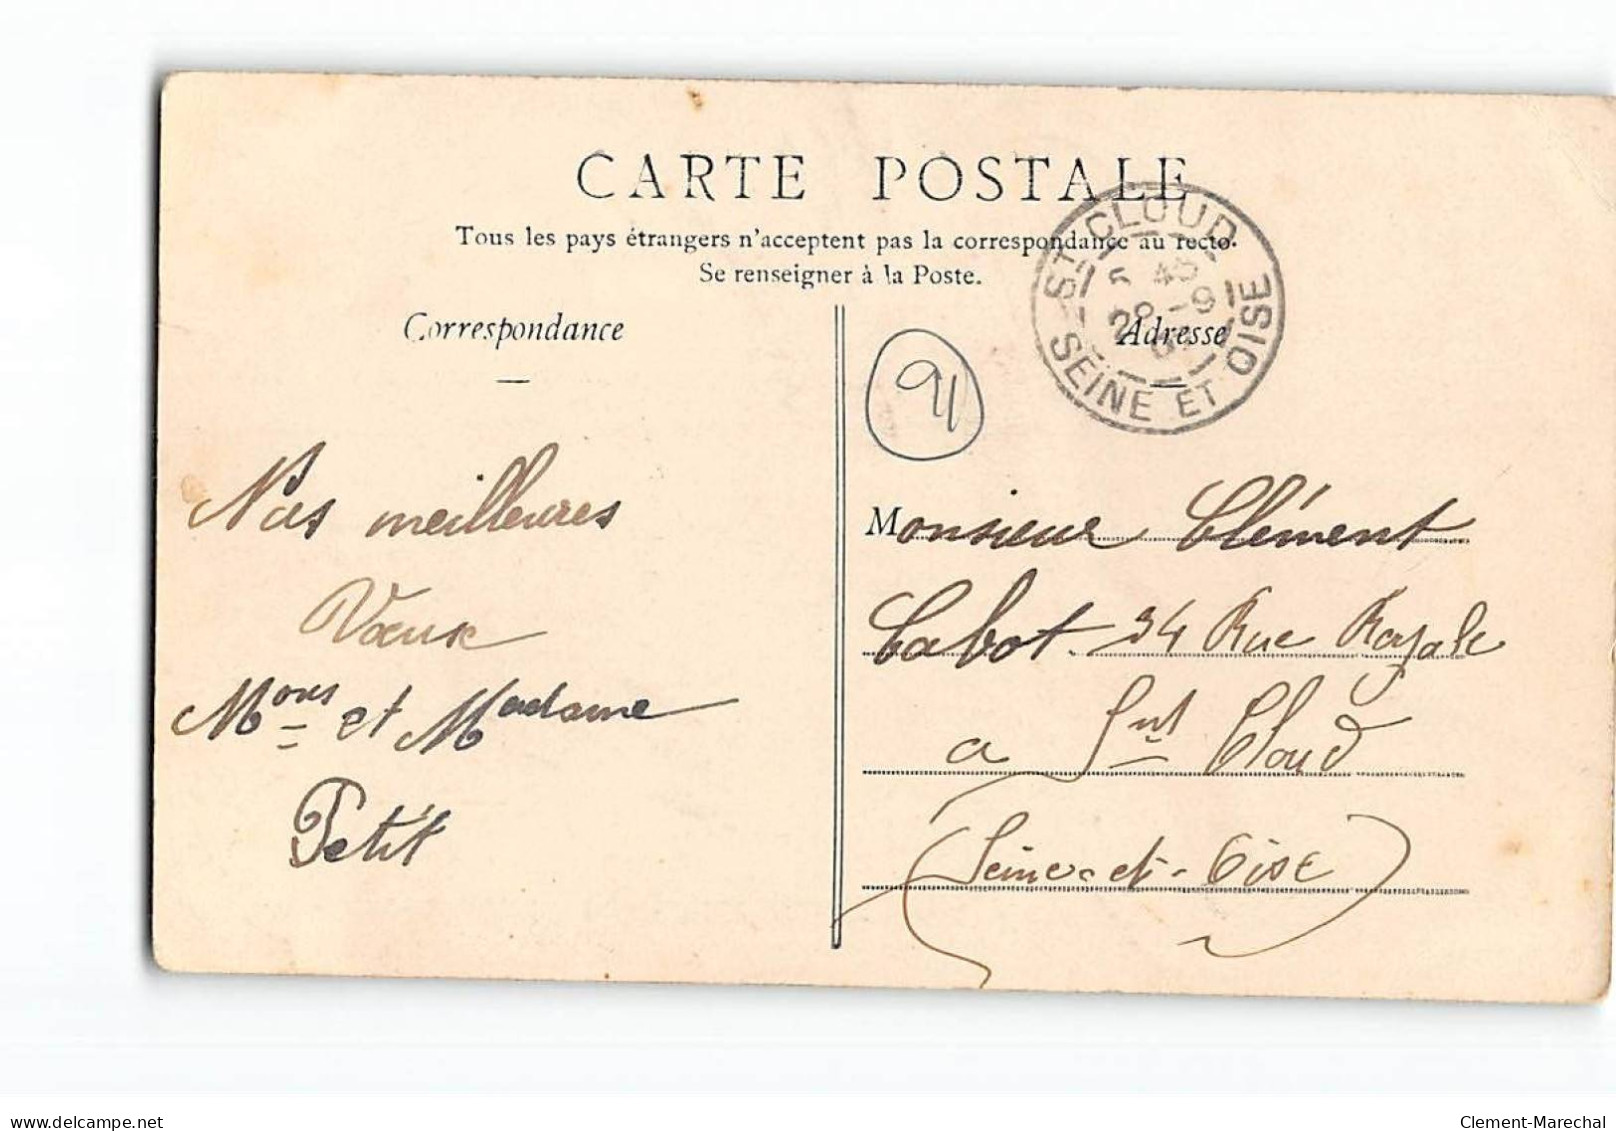 CARTE POSTALE
Tous les pays étrangers n'acceptent pas la correspondance au recto.
Se renseigner à la Poste.
Correspondance
Adresse
ST CLOUD
5 45
28 -9
SEINE ET OISE
91
Nos meilleures
Vœux
Mons et Madame
Petit
Monsieur Clément
Cabot 34 Rue Royale
a Snt Cloud
(Seine-et-Oise)
www.delcampe.net
Clement-Marechal